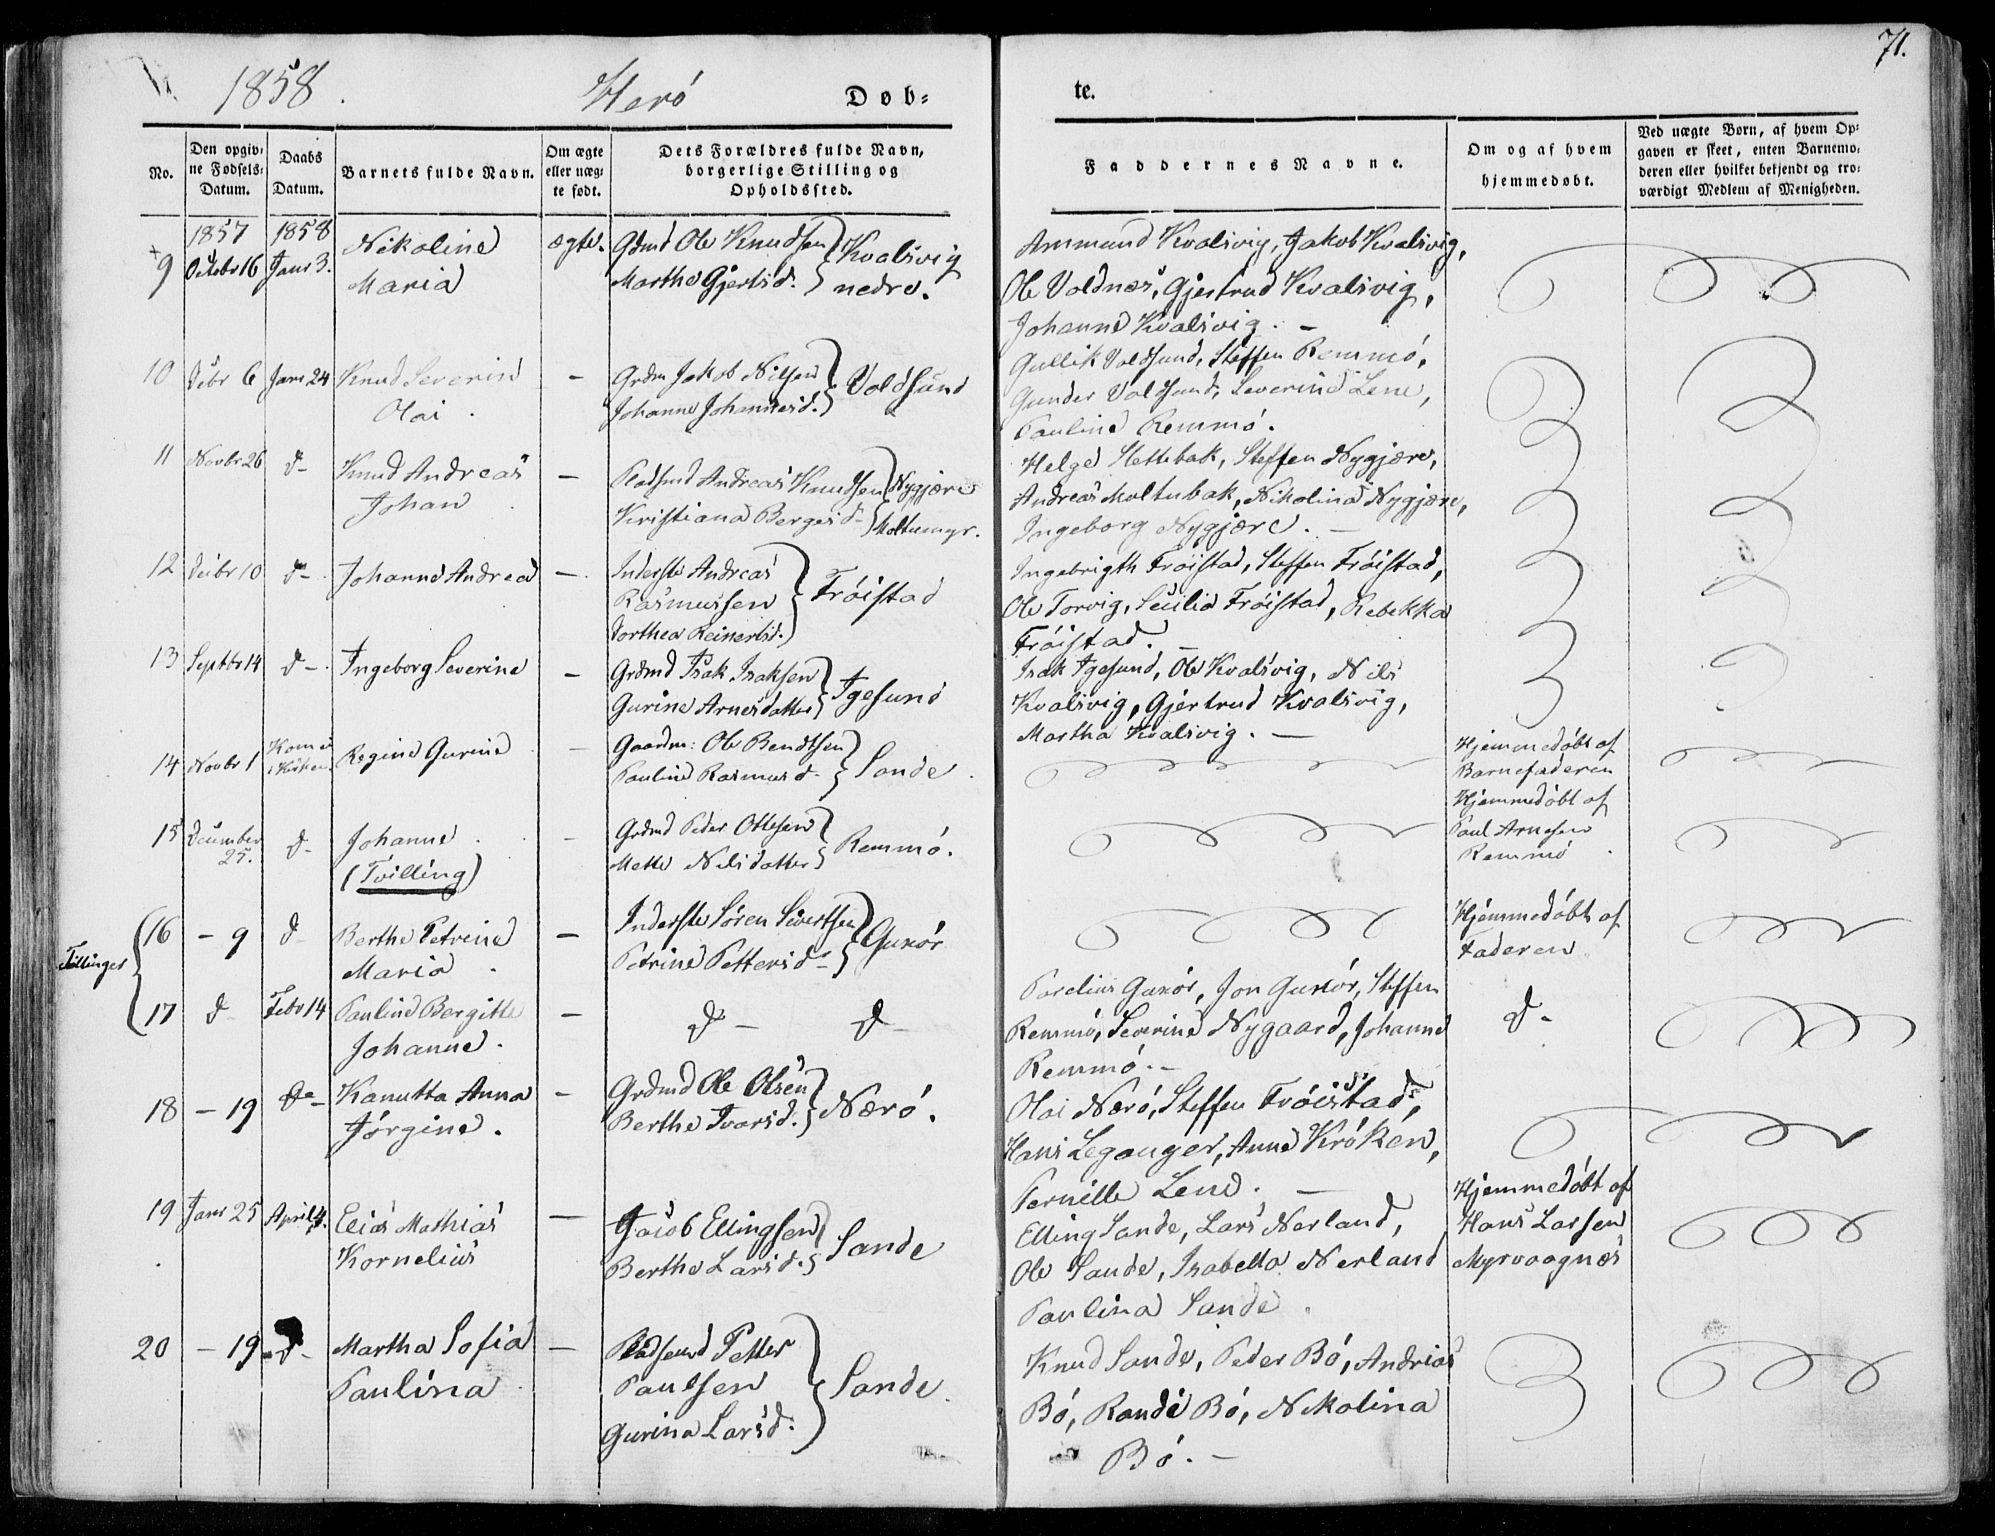 71.
1858. Herö Døb=
te.
No.
Den opgiv=
ne Fødsels=
Datum.
Daabs
Datum.
Barnets fulde Navn.
Om ægte
eller uæg=
te født.
Dets Forældres fulde Navn,
borgerlige Stilling og
Opholdssted.
Faddernes Navne.
Om og af hvem
hjemmedøbt.
Ved uægte Børn, af hvem Op=
gaven er skeet, enten Barnemo=
deren eller hvilket bekjendt og tro=
værdigt Medlem af Menigheden.
1857 1858
9 Octobr 16 Janr 3. Nikoline ægte. Grdmd Ole Knudsen Kvalsvig
Maria Marthe Gjertsd. nedre.
Ammund Kvalsvig, Jakob Kvalsvig,
Ole Voldnæs, Gjertrud Kvalsvig,
Johanne Kvalsvig. -
10 Debr 6 Janr 24 Knud Severin - Grdm Jakob Nilsen Voldsund
Olai. Johanne Johannesd.
Gullik Voldsund, Steffen Remmö,
Gunder Voldsund, Severine Lene,
Pauline Remmö.
11 Novbr 26 d- Knud Andreas - Pladsmd Andreas Knudsen Nygjære
Johan Kristiana Bergesd- Moltumyr.
Helge Hettebak, Steffen Nygjære,
Andreas Moltubak, Nikolina Nygjære,
Ingeborg Nygjære. -
12 Decbr 10 d- Johanne Andrea -. Inderste Andreas
Rasmussen Fröistad
Dorthea Reinertsd.
Ingebrigth Fröistad, Steffen Fröistad,
Ole Torvig, Secilia Fröistad, Rebekka
Fröistad. -
13 Septbr 14 d-. Ingeborg Severine - Grdmd Isak Isaksen Igesund
Gurine Arnesdatter
Isak Igesund, Ole Kvalsvig, Nils
Kvalsvig, Gjertrud Kvalsvig,
Martha Kvalsvig. -
14 Novbr 1 Kom ei i Kirken. Regine Gurine - Gaardm: Ole Bendtsen Sande.
Pauline Rasmusd.
Hjemmedöbt af
Barnefaderen
15 December
25. d- Johanne. - Grdmd Peder Ottesen Remmö.
(Tvilling) Mette Nilsdatter
Hjemmedöbt af
Paul Arnesen
Remmö.
Tvillinger
16 - 9 d- Berthe Petrine - Inderste Sören Sivertsen Gurör
Maria. Petrine Pettersd-
Hjemmedöbt af
Faderen
17 d- Febr 14 Pauline Bergitte - d- d-
Johanne.
Parelius Gurör, Jon Gurör, Steffen
Remmö, Severine Nygaard, Johanne
Remmö. -
d-
18 - 19 do- Kanutta Anna - Grdmd Ole Olsen Nærö.
Jörgine. Berthe Ivarsd.
Olai Nærö, Steffen Fröistad,
Hans Leganger, Anne Kröken,
Pernille Lene. -
19 Janr 25 April 4. Elias Mathias - Jacob Ellingsen Sande
Kornelius Berthe Larsd.
Elling Sande, Lars Nerland,
Ole Sande, Isabella Nerland
Paulina Sande.
Hjemmedöbt af
Hans Larsen
Myrvaagnæs
20 - 19 d- Martha Sofia - Pladsmd Petter
Paulina Paulsen Sande.
Gurina Larsd.
Knud Sande, Peder Bö, Andrias
Bö, Randi Bö, Nikolina
Bö. -